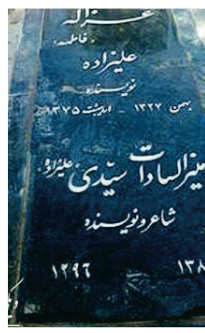 غزاله
(فاطمه)
علیزاده
نویسنده
بهمن ۱۳۲۷ - اردیبهشت ۱۳۷۵
السادات سیّدی علیزاده
شاعر و نویسنده
۱۲۹۶ ۱۳۸